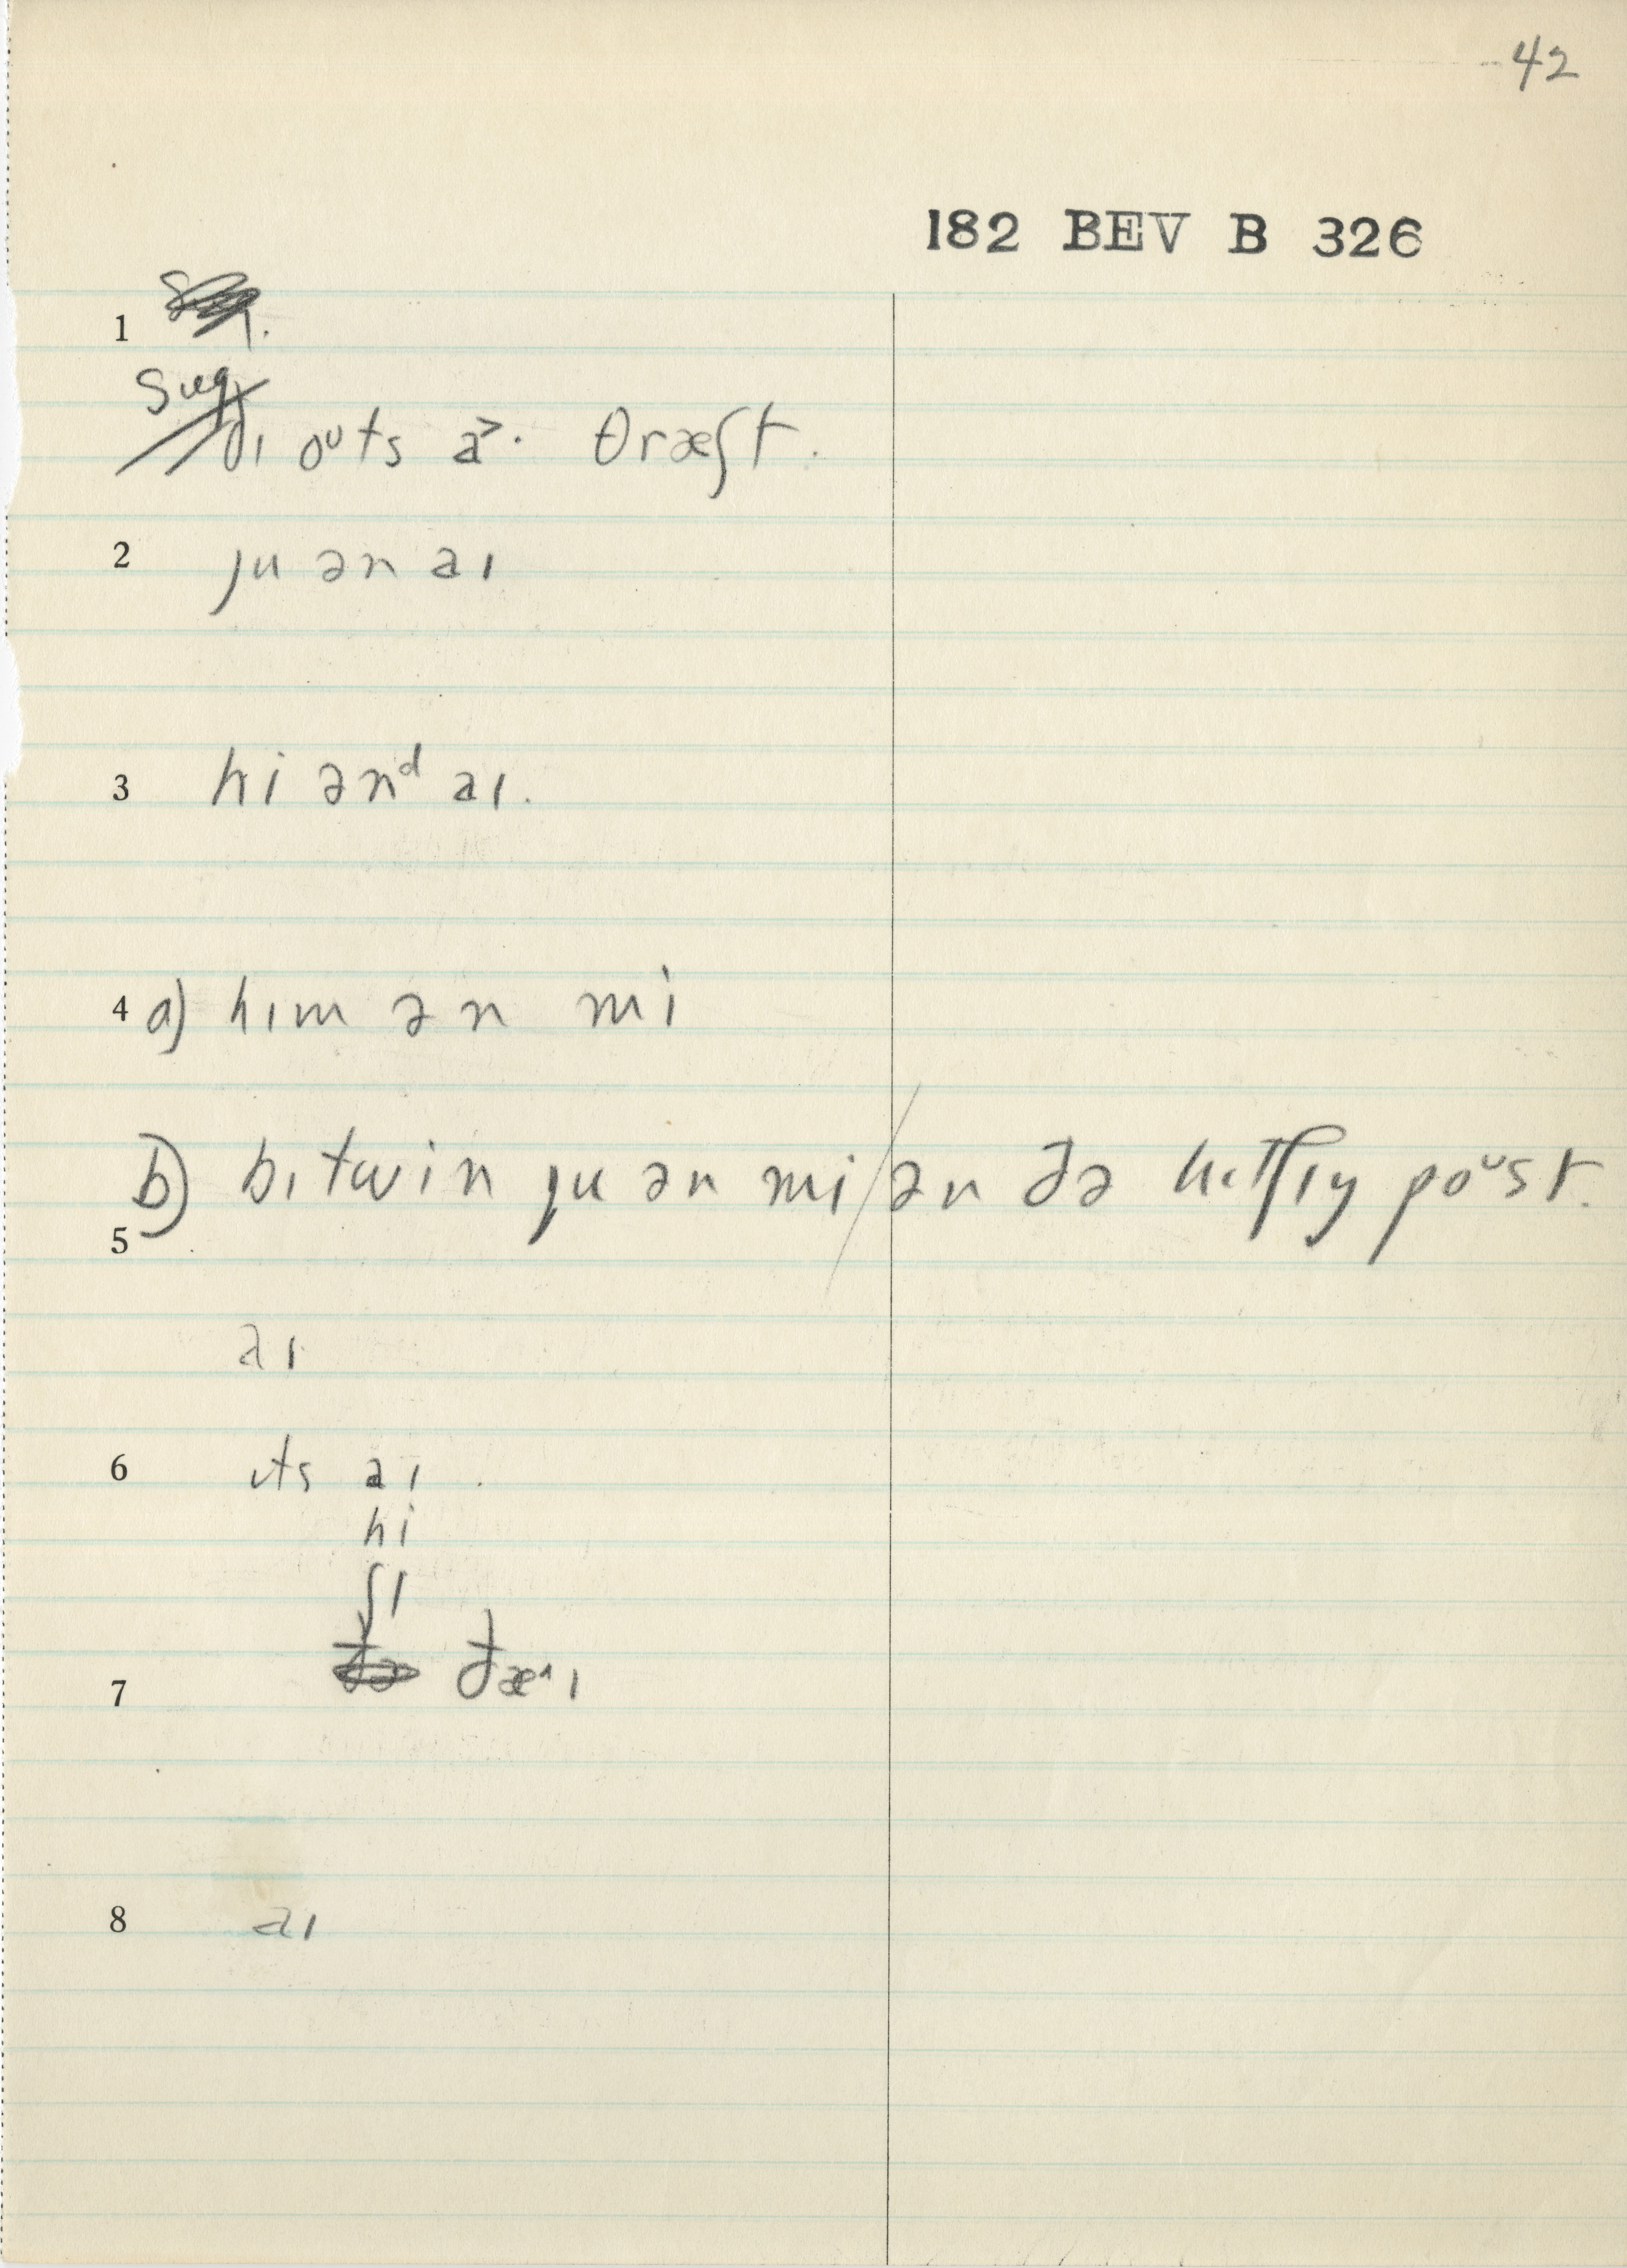 42
182 BEV B 326
1
Sug
ðɪ oᵘts a˃· θræʃt.
2 ju ən aɪ
3 hi ənᵈ aɪ.
4 a) hɪm ən mi
b) bɪtwin ju ən mi/ən ðə hɪtʃɪŋ poᵘst.
5
aɪ
6 ɪts aɪ.
hi
ʃɪ
7 ðæ^ɪ
8 aɪ